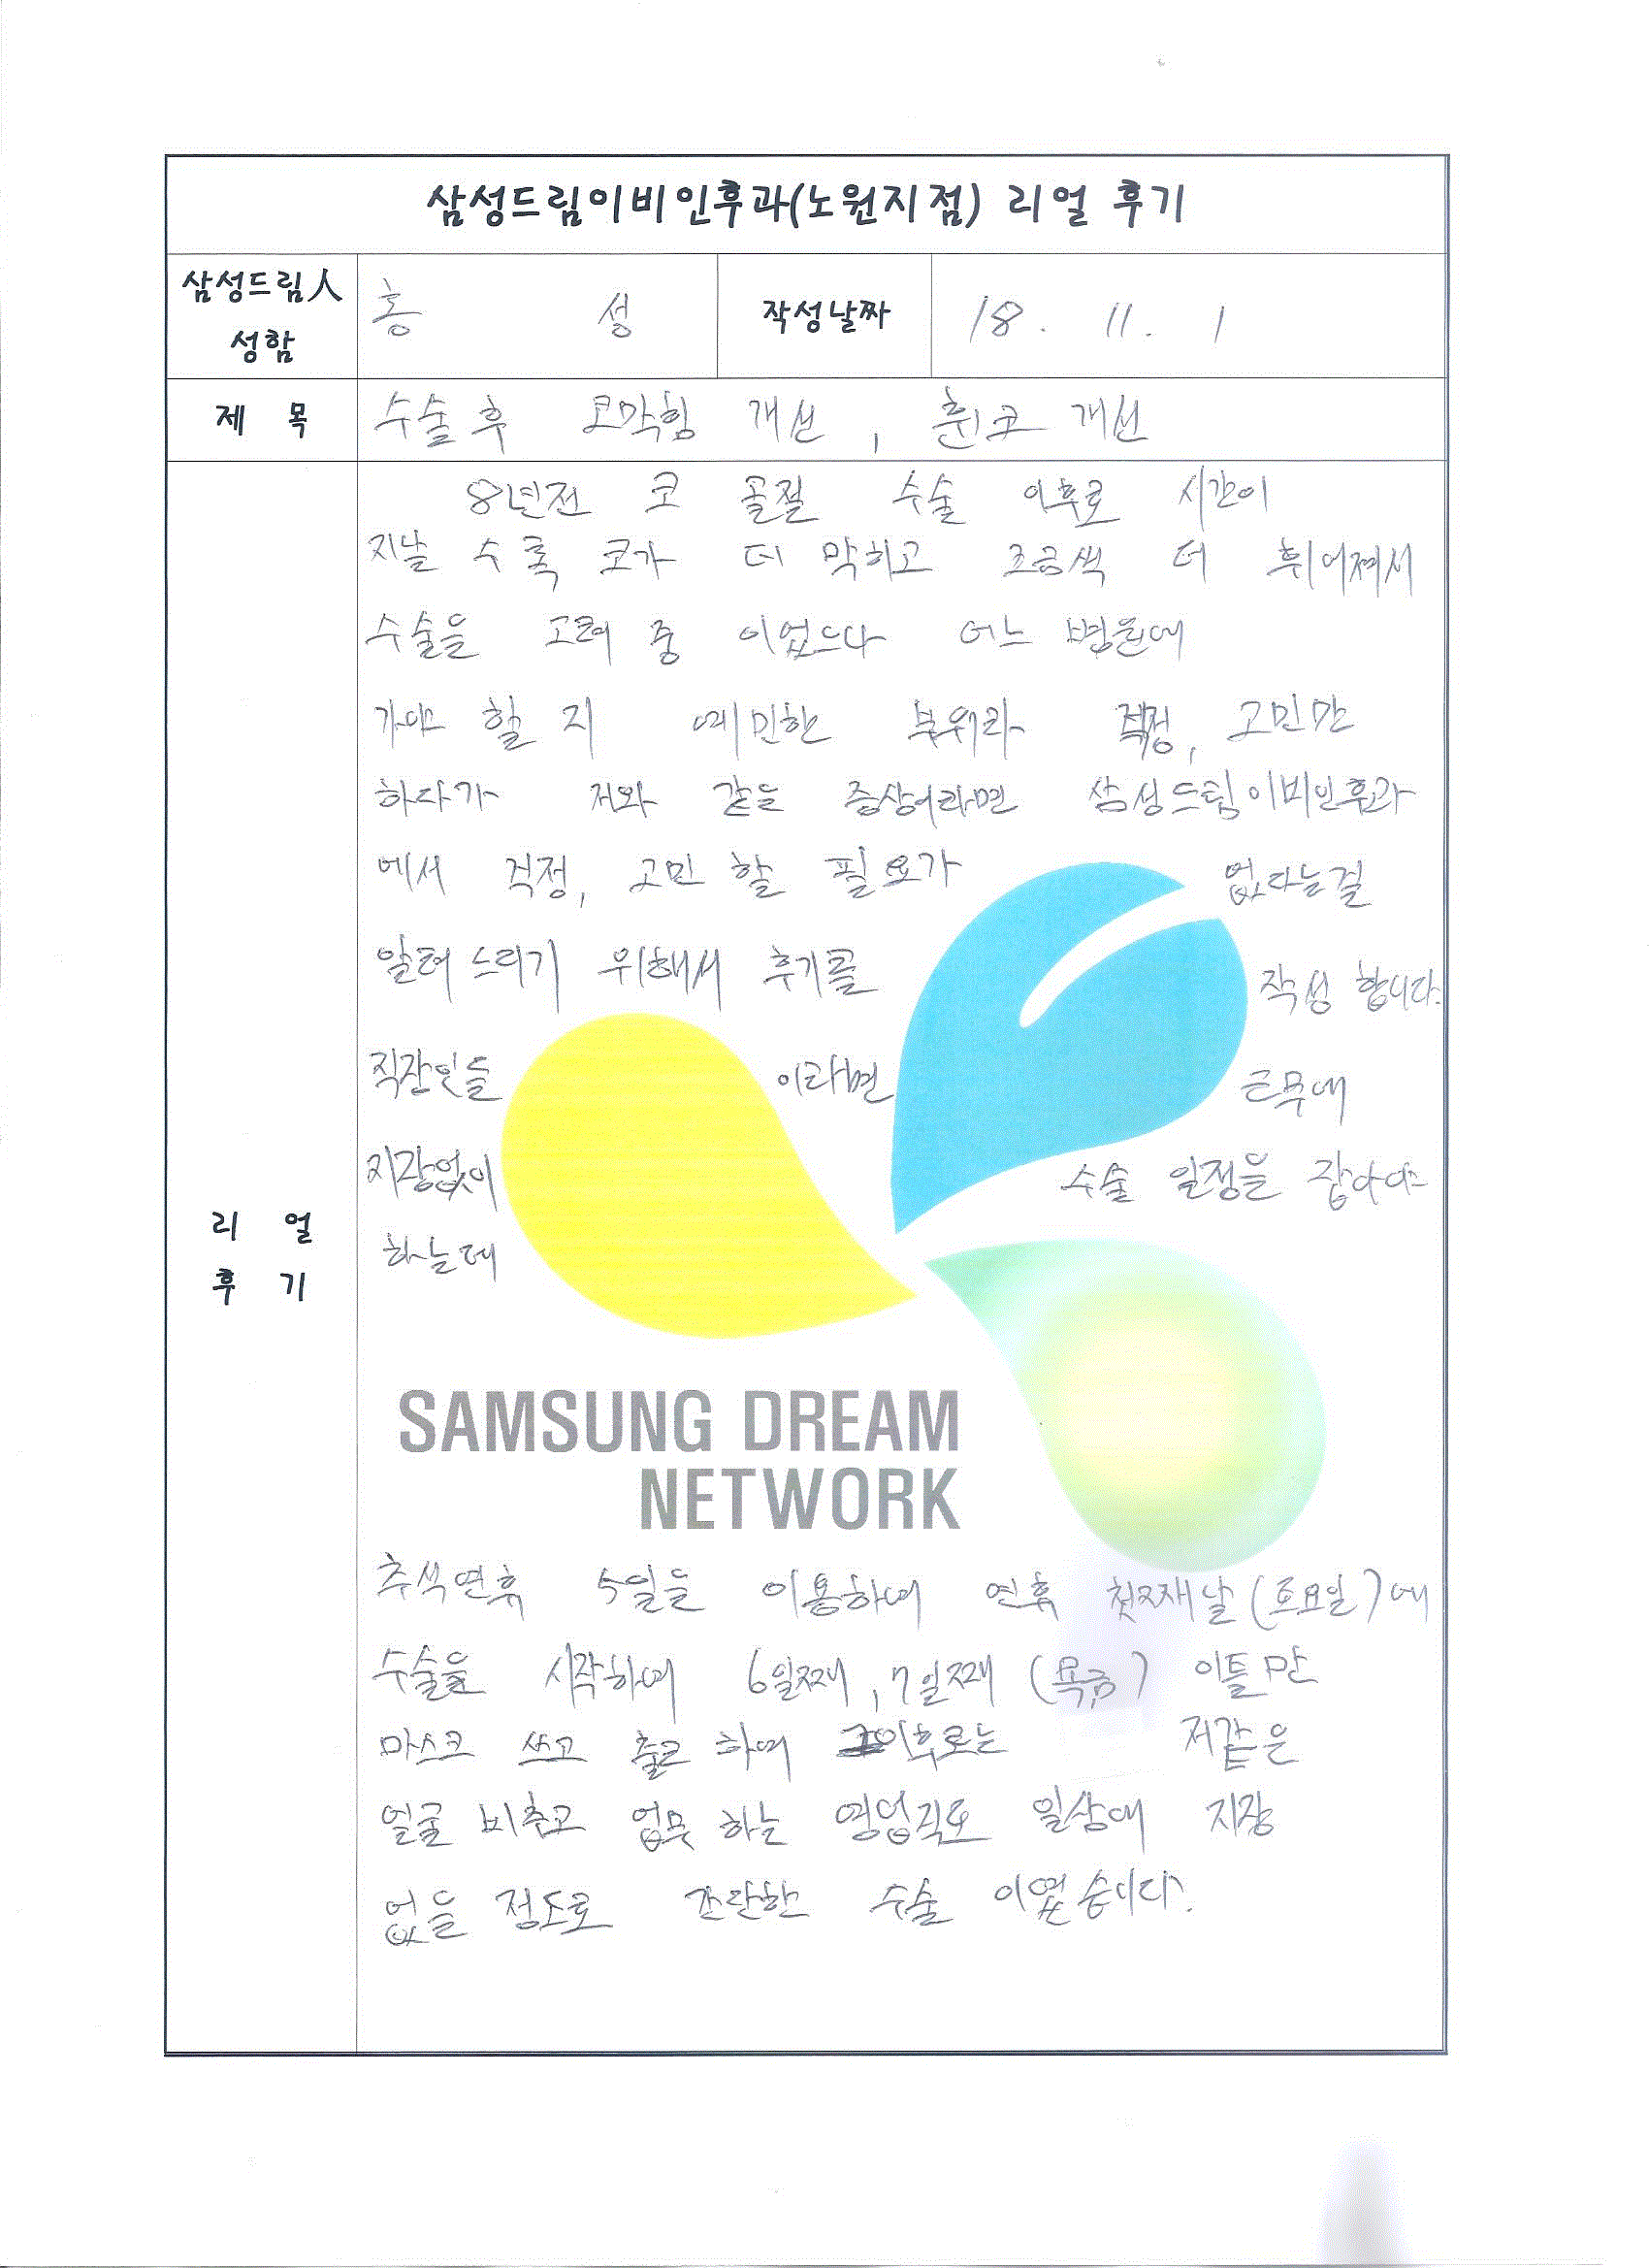 삼성드림이비인후과(노원지점) 리얼 후기
삼성드림人 성함 홍 성 작성날짜 18. 11. 1
제 목 수술후 코막힘 개선, 휜코 개선
리 얼 후 기
8년전 코 골절 수술 이후로 시간이
지날 수록 코가 더 막히고 조금씩 더 휘어져서
수술을 고려 중 이었으나 어느 병원에
가야 할 지 예민한 부위라 걱정, 고민만
하다가 저와 같은 증상이라면 삼성드림이비인후과
에서 걱정, 고민 할 필요가 없다는걸
알려 드리기 위해서 후기를 작성 합니다.
직장인들 이라면 근무에
지장없이 수술 일정을 잡아야
하는데
SAMSUNG DREAM
NETWORK
추석연휴 5일을 이용하여 연휴 첫째날(토요일)에
수술을 시작하여 6일째, 7일째 (목금) 이틀만
마스크 쓰고 출근 하며 이후로는 저같은
얼굴 비추고 업무 하는 영업직도 일상에 지장
없을 정도로 간단한 수술 이였습니다.